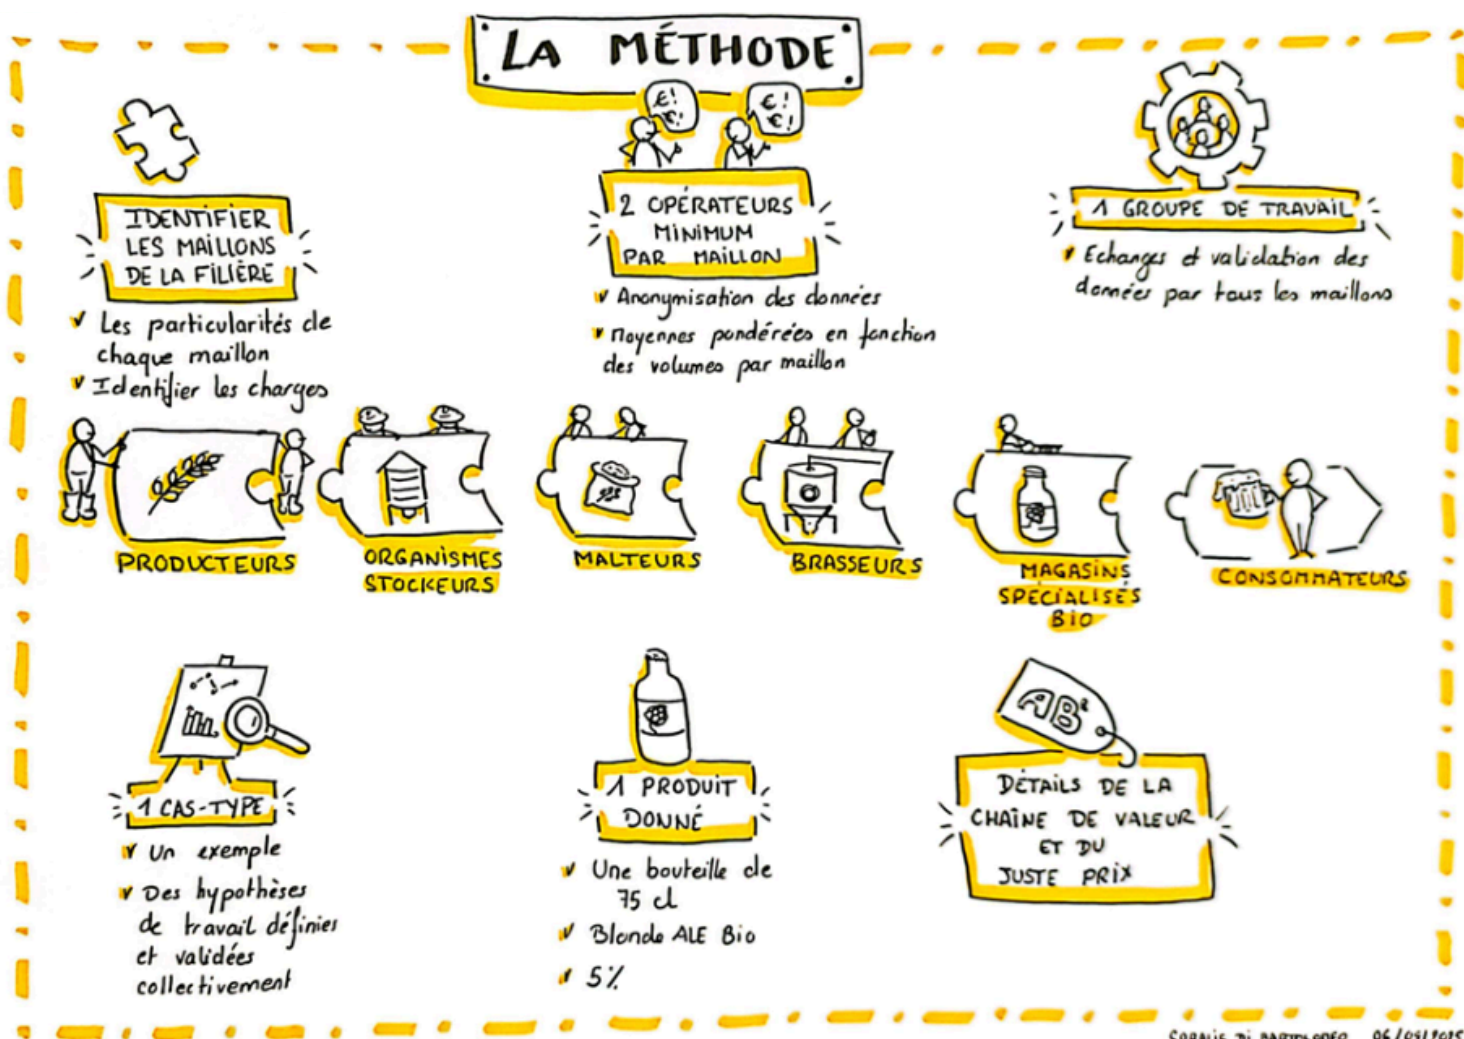 LA MÉTHODE
€!
€!
€!
€!
IDENTIFIER
LES MAILLONS
DE LA FILIÈRE
Les particularités de
chaque maillon
Identifier les charges
2 OPÉRATEURS
MINIMUM
PAR MAILLON
Anonymisation des données
Moyennes pondérées en fonction
des volumes par maillon
1 GROUPE DE TRAVAIL
Echanges et validation des
données par tous les maillons
PRODUCTEURS
ORGANISMES
STOCKEURS
MALTEURS
BRASSEURS
MAGASINS
SPÉCIALISÉS
BIO
CONSOMMATEURS
1 CAS-TYPE
Un exemple
Des hypothèses
de travail définies
et validées
collectivement
1 PRODUIT
DONNÉ
Une bouteille de
75 cl
Blonde ALE Bio
5%
AB
DÉTAILS DE LA
CHAÎNE DE VALEUR
ET DU
JUSTE PRIX
CORALIE DI BARTOLOMEO